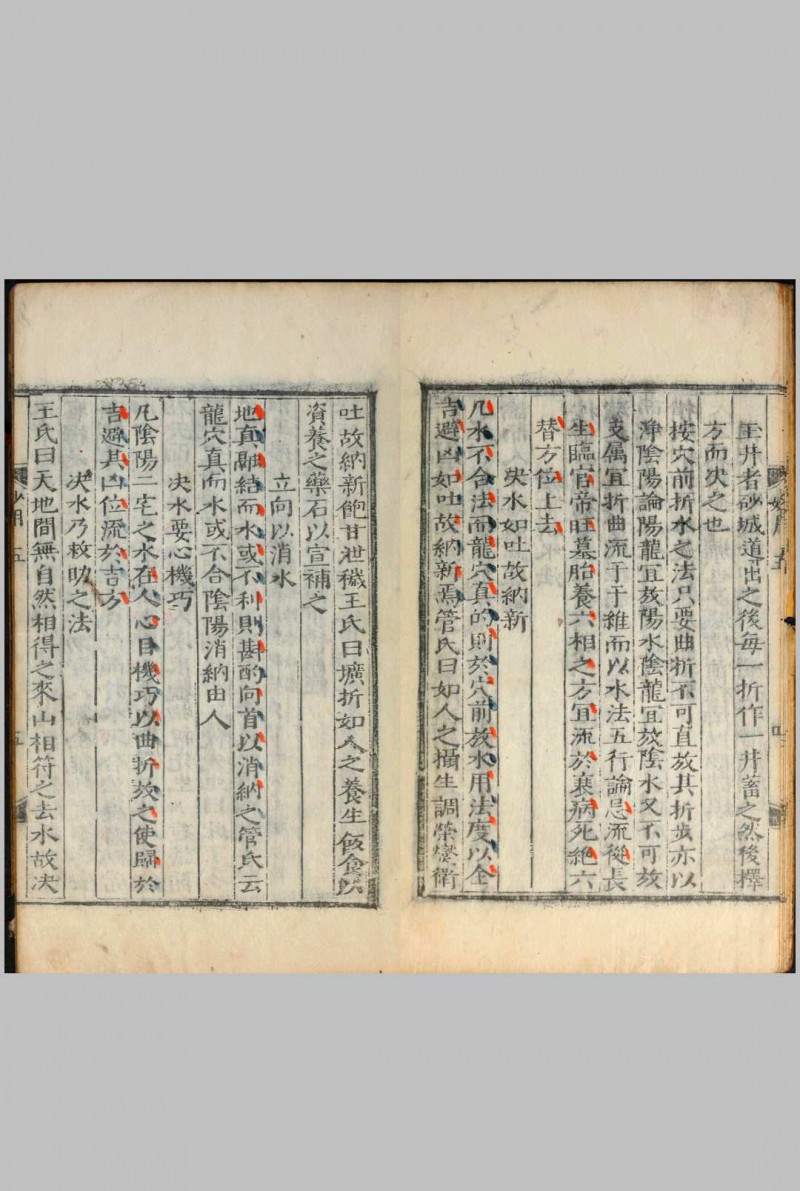 玉井者砂城道諨出之後每一折作一井蓄之然後擇
方而决之也
按穴前折水之法只要曲折不可直放其折步亦以
淨陰陽論陽龍宜放陽水陰龍宜放陰水又不可放
支属宜折曲流于干維而以水法五行論忌流從長
生臨官帝旺墓胎養六相之方宜流於衰病死絶六
替方位上去
决水如吐故納新
凡水不合法而龍穴真的則於穴前放水用法度以全
吉避凶如吐故納新焉管氏曰如人之攝生調榮燮衛
吐故納新飽甘泄穢王氏曰壙折如人之養生飯食以
資養之藥石以宣補之
立向以消水
地真融結而水或不利則斟酌向首以消納之管氏云
龍穴真而水或不合陰陽消納由人
决水要心機巧
凡陰陽二宅之水在人心目機巧以曲折放之使臨於
吉避其凶位流於吉方
决水乃救助之法
王氏曰天地間無自然相得之來山相符之去水故决
妙用 五
五